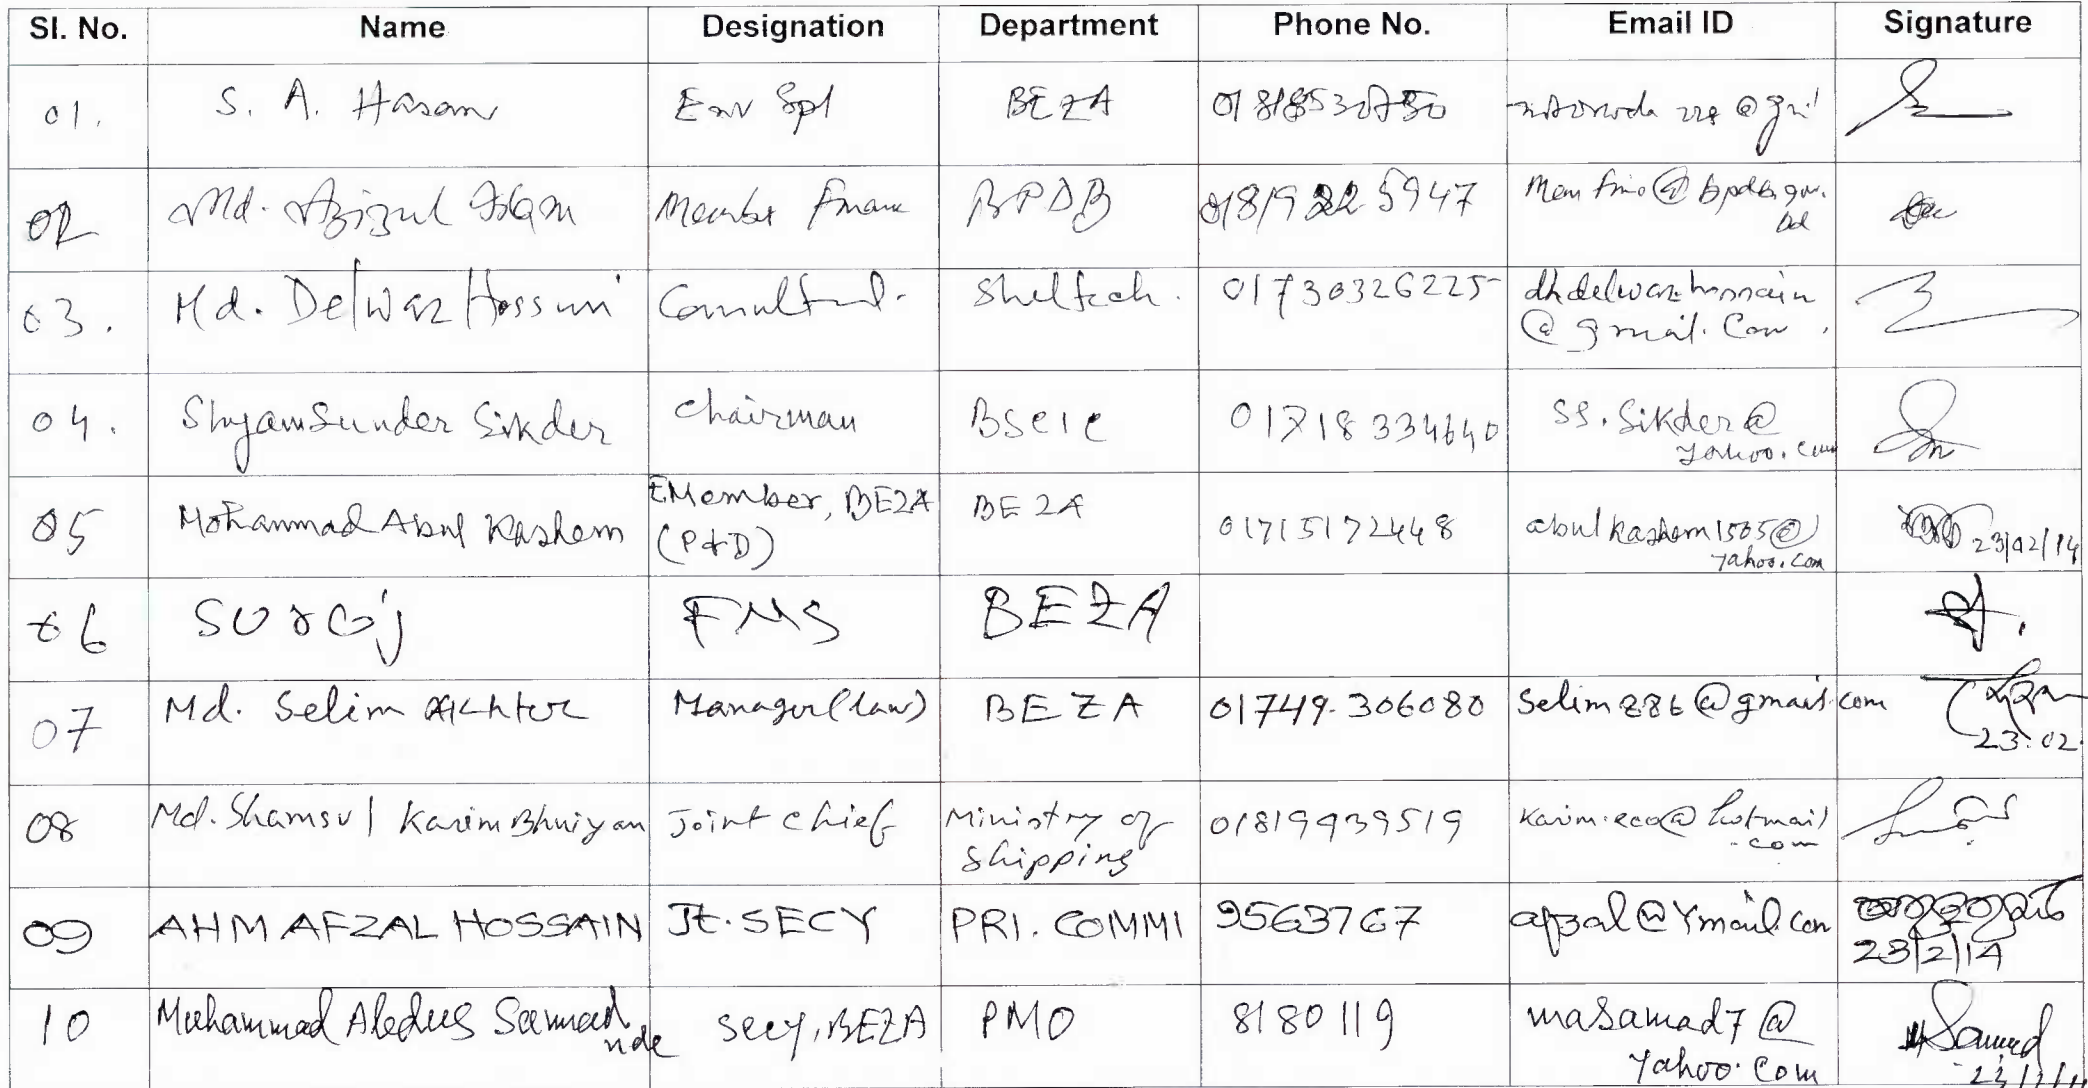 Sl. No. Name Designation Department Phone No. Email ID Signature
01. S. A. Hasan Env Spl BEZA
02 Md. Azizul Islam Member Finance BPDB 01819225947
03. Md. Delwar Hossain Consultant. Sheltech. 01730326225 dhdelwarhossain
@gmail.com
04. Shyamsunder Sikder Chairman BSCIC 01718334640 ss.sikder@
yahoo.com
05 Mohammad Abul Kashem EMember, BEZA BEZA 01715172448 abulkashem1505@
(P&D) yahoo.com 23/02/14
06 SUROJ FMS BEZA
07 Md. Selim Akhter Manager(law) BEZA 01749-306080 selim886@gmail.com
23.02.
08 Md. Shamsul Karim Bhuiyan Joint chief Ministry of 01819939519 karim.eco@hotmail
shipping .com
09 AHM AFZAL HOSSAIN Jt. SECY PRI. COMMI 9563767 afzal@ymail.com
23/2/14
10 Muhammad Abdus Samad Secy, BEZA PMO 8180119 masamad7@ Samad
yahoo.com